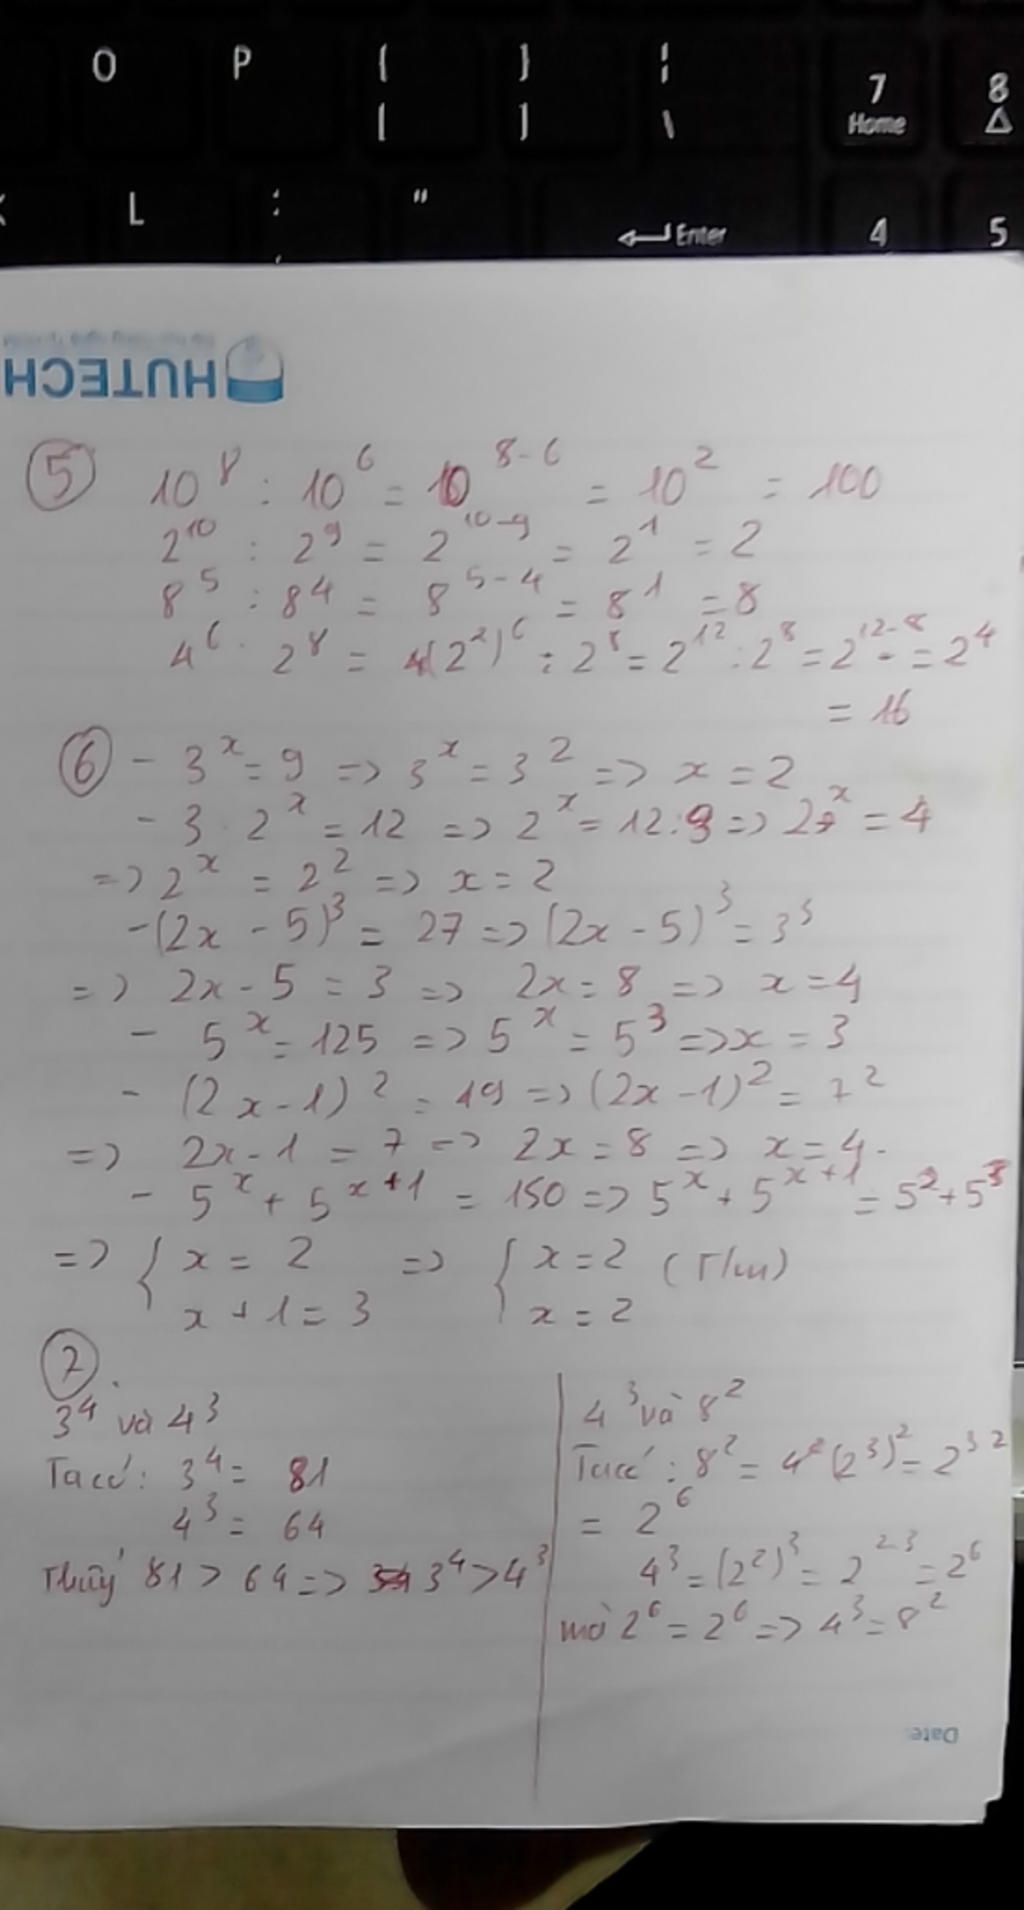 O P { } ¦ 7 8
[ ] \ Home
L : " Enter 4 5
HUTECH
5 10^8 : 10^6 = 10^8-6 = 10^2 = 100
2^10 : 2^9 = 2^10-9 = 2^1 = 2
8^5 : 8^4 = 8^5-4 = 8^1 = 8
4^6 : 2^8 = (2^2)^6 : 2^8 = 2^12 : 2^8 = 2^12-8 = 2^4
= 16
6 - 3^x = 9 => 3^x = 3^2 => x = 2
- 3 . 2^x = 12 => 2^x = 12 : 3 => 2^x = 4
=> 2^x = 2^2 => x = 2
- (2x - 5)^3 = 27 => (2x - 5)^3 = 3^3
=> 2x - 5 = 3 => 2x = 8 => x = 4
- 5^x = 125 => 5^x = 5^3 => x = 3
- (2x - 1)^2 = 49 => (2x - 1)^2 = 7^2
=> 2x - 1 = 7 => 2x = 8 => x = 4.
- 5^x + 5^x+1 = 150 => 5^x + 5^x+1 = 5^2 + 5^3
=> { x = 2 => { x = 2 (T/m)
x + 1 = 3 x = 2
7.
3^4 và 4^3
Ta có: 3^4 = 81
4^3 = 64
Thấy 81 > 64 => 3^4 > 4^3
4^3 và 8^2
Ta có: 8^2 = (2^3)^2 = 2^3.2
= 2^6
4^3 = (2^2)^3 = 2^2.3 = 2^6
mà 2^6 = 2^6 => 4^3 = 8^2
Date: